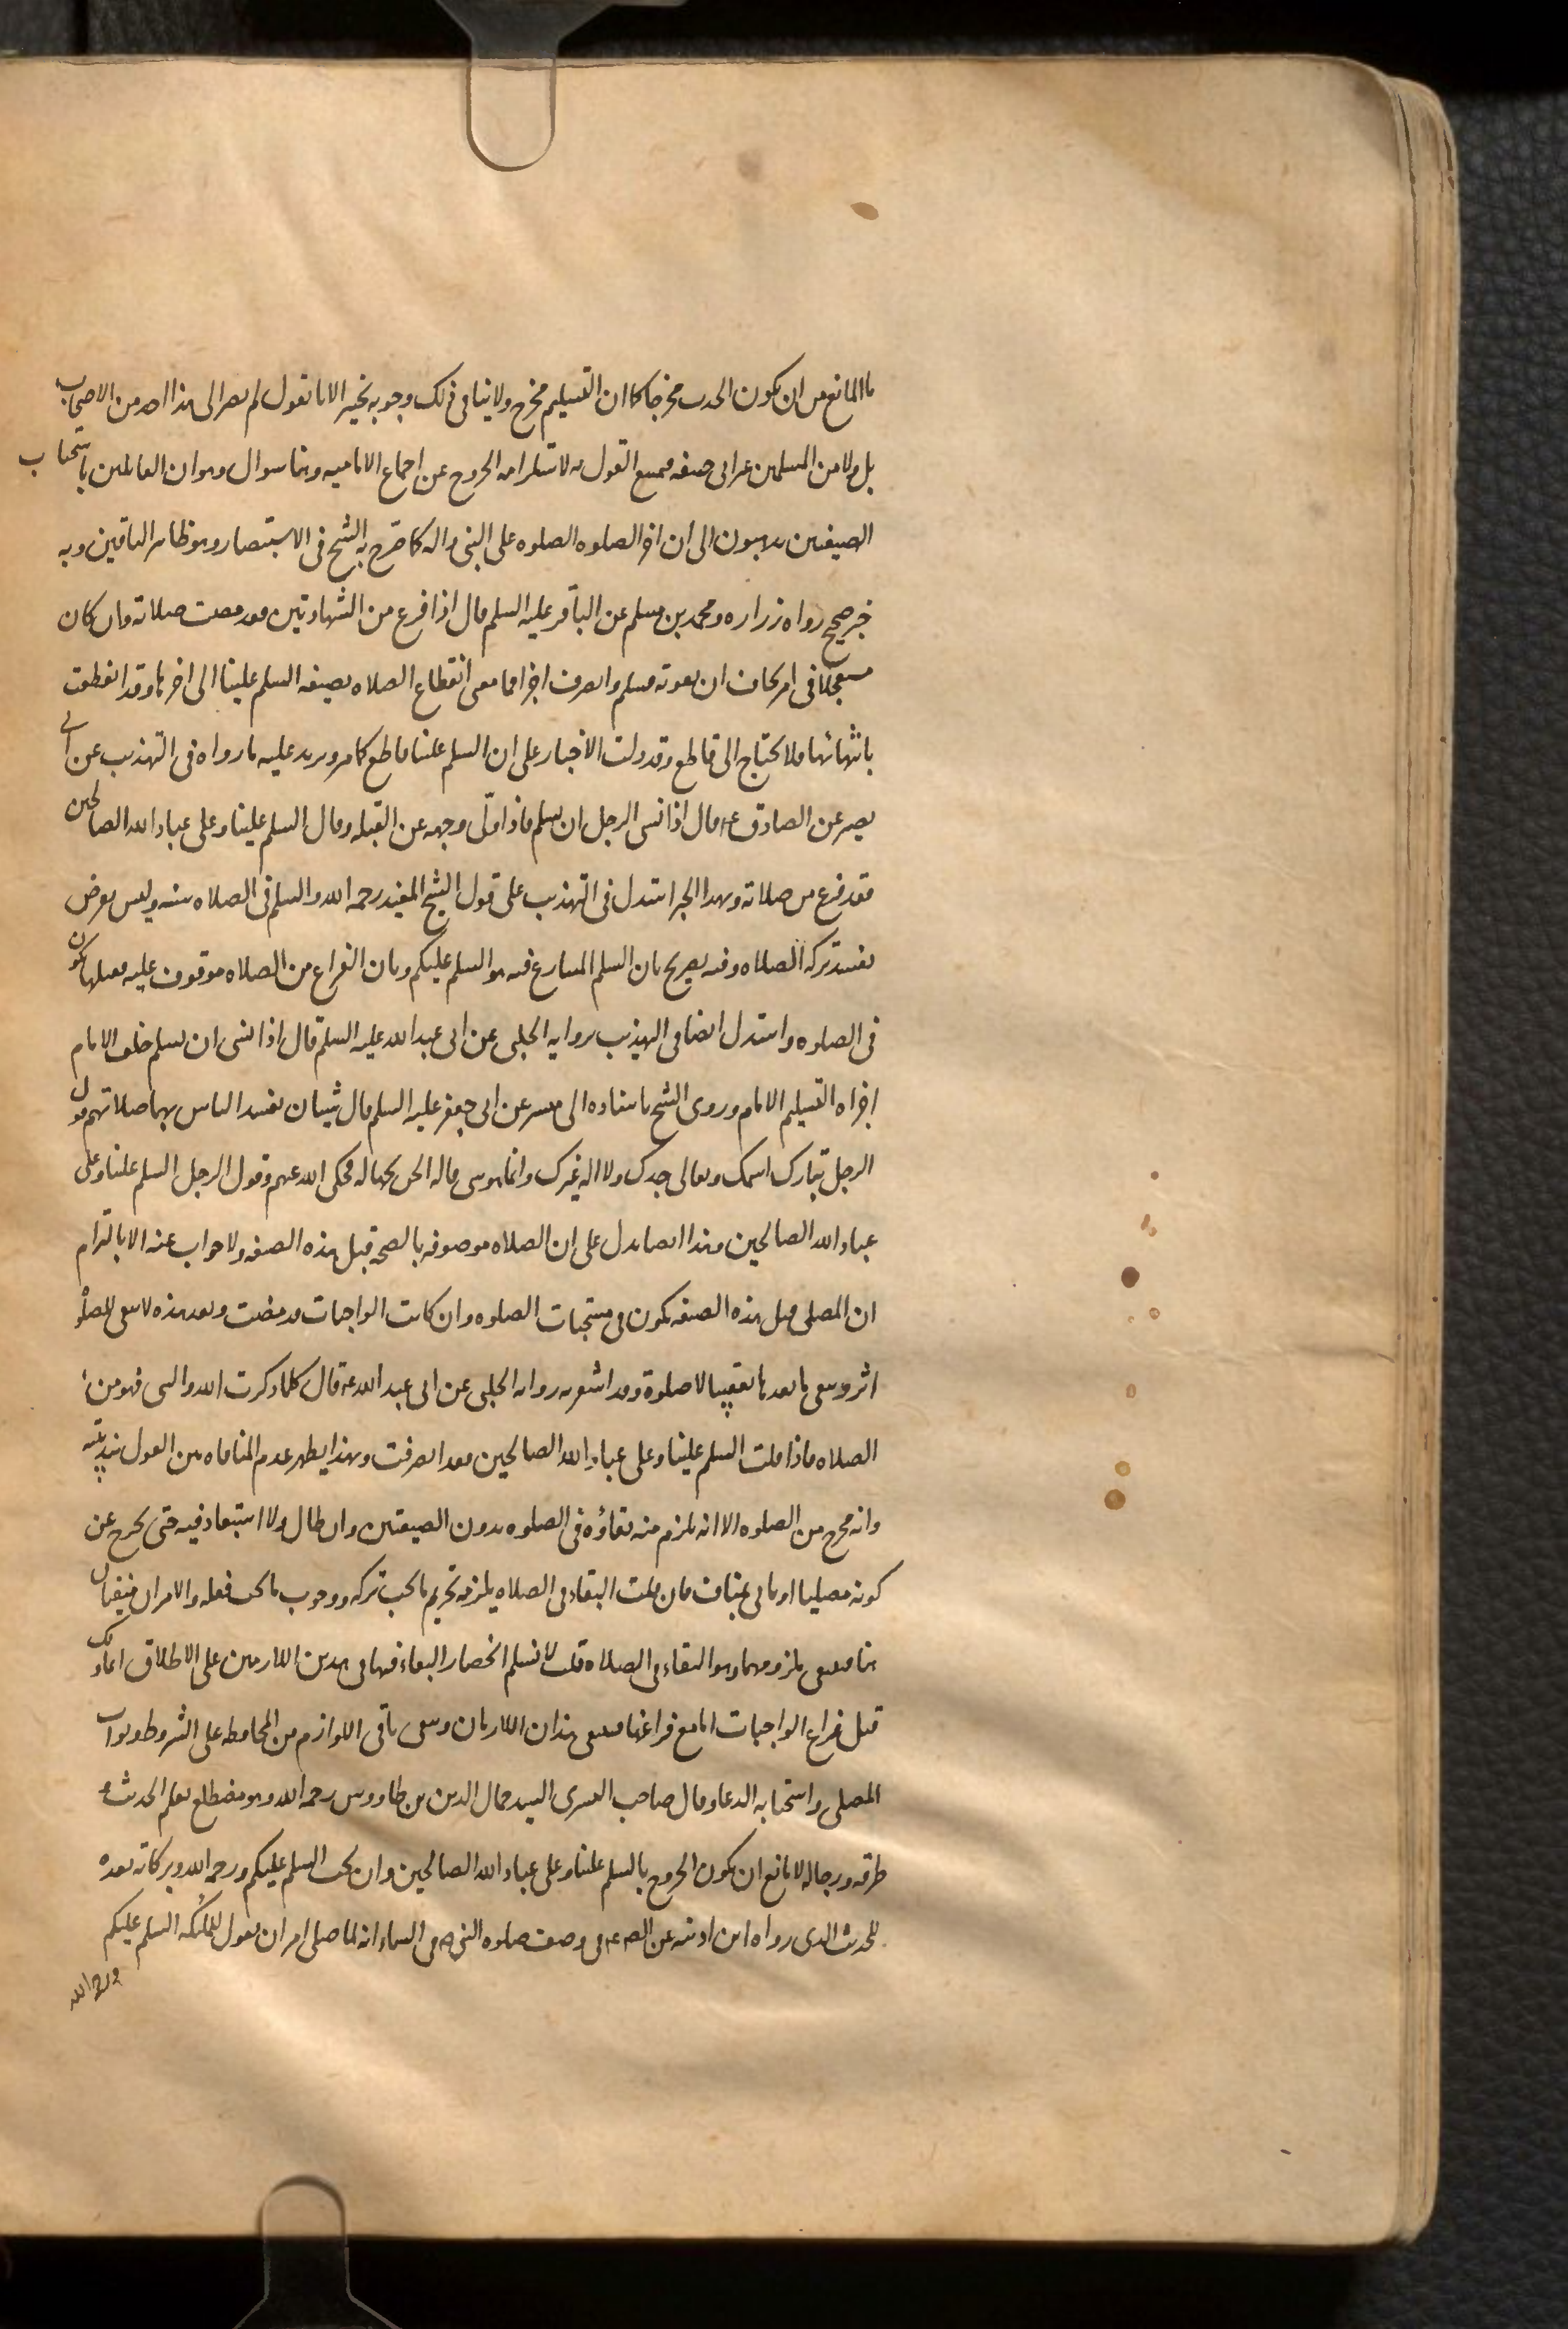 ما المانع من ان يكون الحدث مخرجا كما ان التسليم مخرج ولا ينافي ذلك وجوبه تخيير الانا نقول لم يصر الى هذا احد من الاصحاب
بل ولا من المسلمين غير ابى حنيفه فيمتنع القول به لاستلزامه الخروج عن اجماع الاماميه وهنا سوال وهو ان القائلين باستحباب
الصيغتين يذهبون الى ان اخر الصلوه الصلوه على النبى واله كما صرح به الشيخ فى الاستبصار وهو ظاهر الباقين وبه
خبر صحيح رواه زراره ومحمد بن مسلم عن الباقر عليه السلم قال اذا فرغ من الشهادتين فقد مضت صلاته وان كان
مستعجلا فى امر يخاف ان يفوته فسلم وانصرف اجزاه فما معنى انقطاع الصلاه بصيغه السلم علينا الى اخرها وقد انقطعت
بانتهائها فلا يحتاج الى قاطع وقد دلت الاخبار على ان السلم علينا قاطع كما مر ويزيد عليه ما رواه فى التهذيب عن ابى
بصير عن الصادق ع قال اذا نسى الرجل ان يسلم فاذا ولى وجهه عن القبله وقال السلم علينا وعلى عباد الله الصالحين
فقد فرغ من صلاته وبهذا الخبر استدل فى التهذيب على قول الشيخ المفيد رحمه الله والسلم فى الصلاه سنه وليس بفرض
تفسد تركه الصلاه وفيه تصريح بان السلم المتنازع فيه هو السلم عليكم وبان الفراغ من الصلاه موقوف عليه فقبلها يكون
فى الصلوه واستدل ايضا فى التهذيب بروايه الحلبى عن ابى عبد الله عليه السلم قال اذا نسى ان يسلم خلف الامام
اجزاه التسليم الامام وروى الشيخ باسناده الى ميسر عن ابى جعفر عليه السلم قال شيئان تفسد الناس بهما صلاتهم قول
الرجل تبارك اسمك وتعالى جدك ولا اله غيرك وانما هو شى قاله الجن بجهاله فحكى الله عنهم وقول الرجل السلم علينا وعلى
عباد الله الصالحين وهذا ايضا يدل على ان الصلاه موصوفه بالصحه قبل هذه الصيغه ولا جواب عنه الا بالتزام
ان المصلى قبل هذه الصيغه يكون فى مستحبات الصلوه وان كانت الواجبات قد مضت وبعد هذه لا يبقى للصلوه
اثر ويبقى ما بعدها تعقيبا لا صلوة وقد اشعر به روايه الحلبى عن ابى عبد الله ع قال كلما ذكرت الله والنبى فهو من
الصلاه فاذا قلت السلم علينا وعلى عباد الله الصالحين فقد انصرفت وبهذا يظهر عدم المنافاه بين القول بندبيته
وانه مخرج من الصلوه الا انه يلزم منه بقاؤه فى الصلوه بدون الصيغتين وان طال ولا استبعاد فيه حتى يخرج عن
كونه مصليا او ياتى بمناف فان قلت البقاء فى الصلاه يلزمه تحريم ما يجب تركه ووجوب ما يجب فعله والامران منتفيان
هنا فينتفى ملزومهما وهو البقاء فى الصلاه قلت لا نسلم انحصار البقاء فيها فى هذين اللازمين على الاطلاق انما ذلك
قبل فراغ الواجبات اما مع فراغها فينتفى هذان اللازمان ويبقى باقى اللوازم من المحافظه على الشروط وثواب
المصلى واستجابه الدعا وقال صاحب البشرى السيد جمال الدين بن طاووس رحمه الله وهو مضطلع بعلم الحديث و
طرقه ورجاله لا مانع ان يكون الخروج بالسلم علينا وعلى عباد الله الصالحين وان يجب السلم عليكم ورحمه الله وبركاته بعده
للحديث الذى رواه ابن اذينه عن الص ع فى وصف صلوه النبى ص فى السماء انه لما صلى امر ان يقول للملئكه السلم عليكم
ورحمه الله